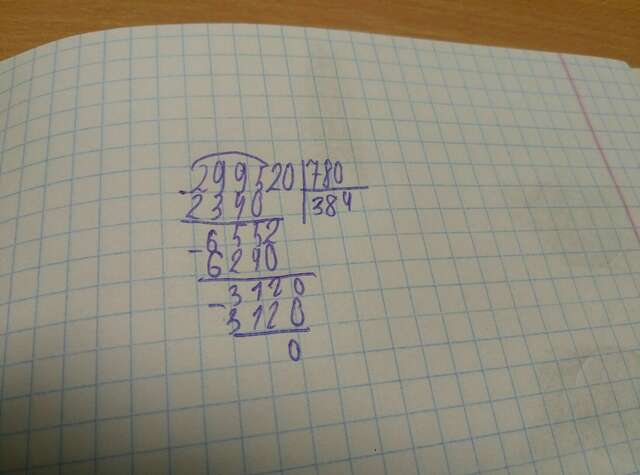 299520 780
2340 384
6552
6240
3120
3120
0